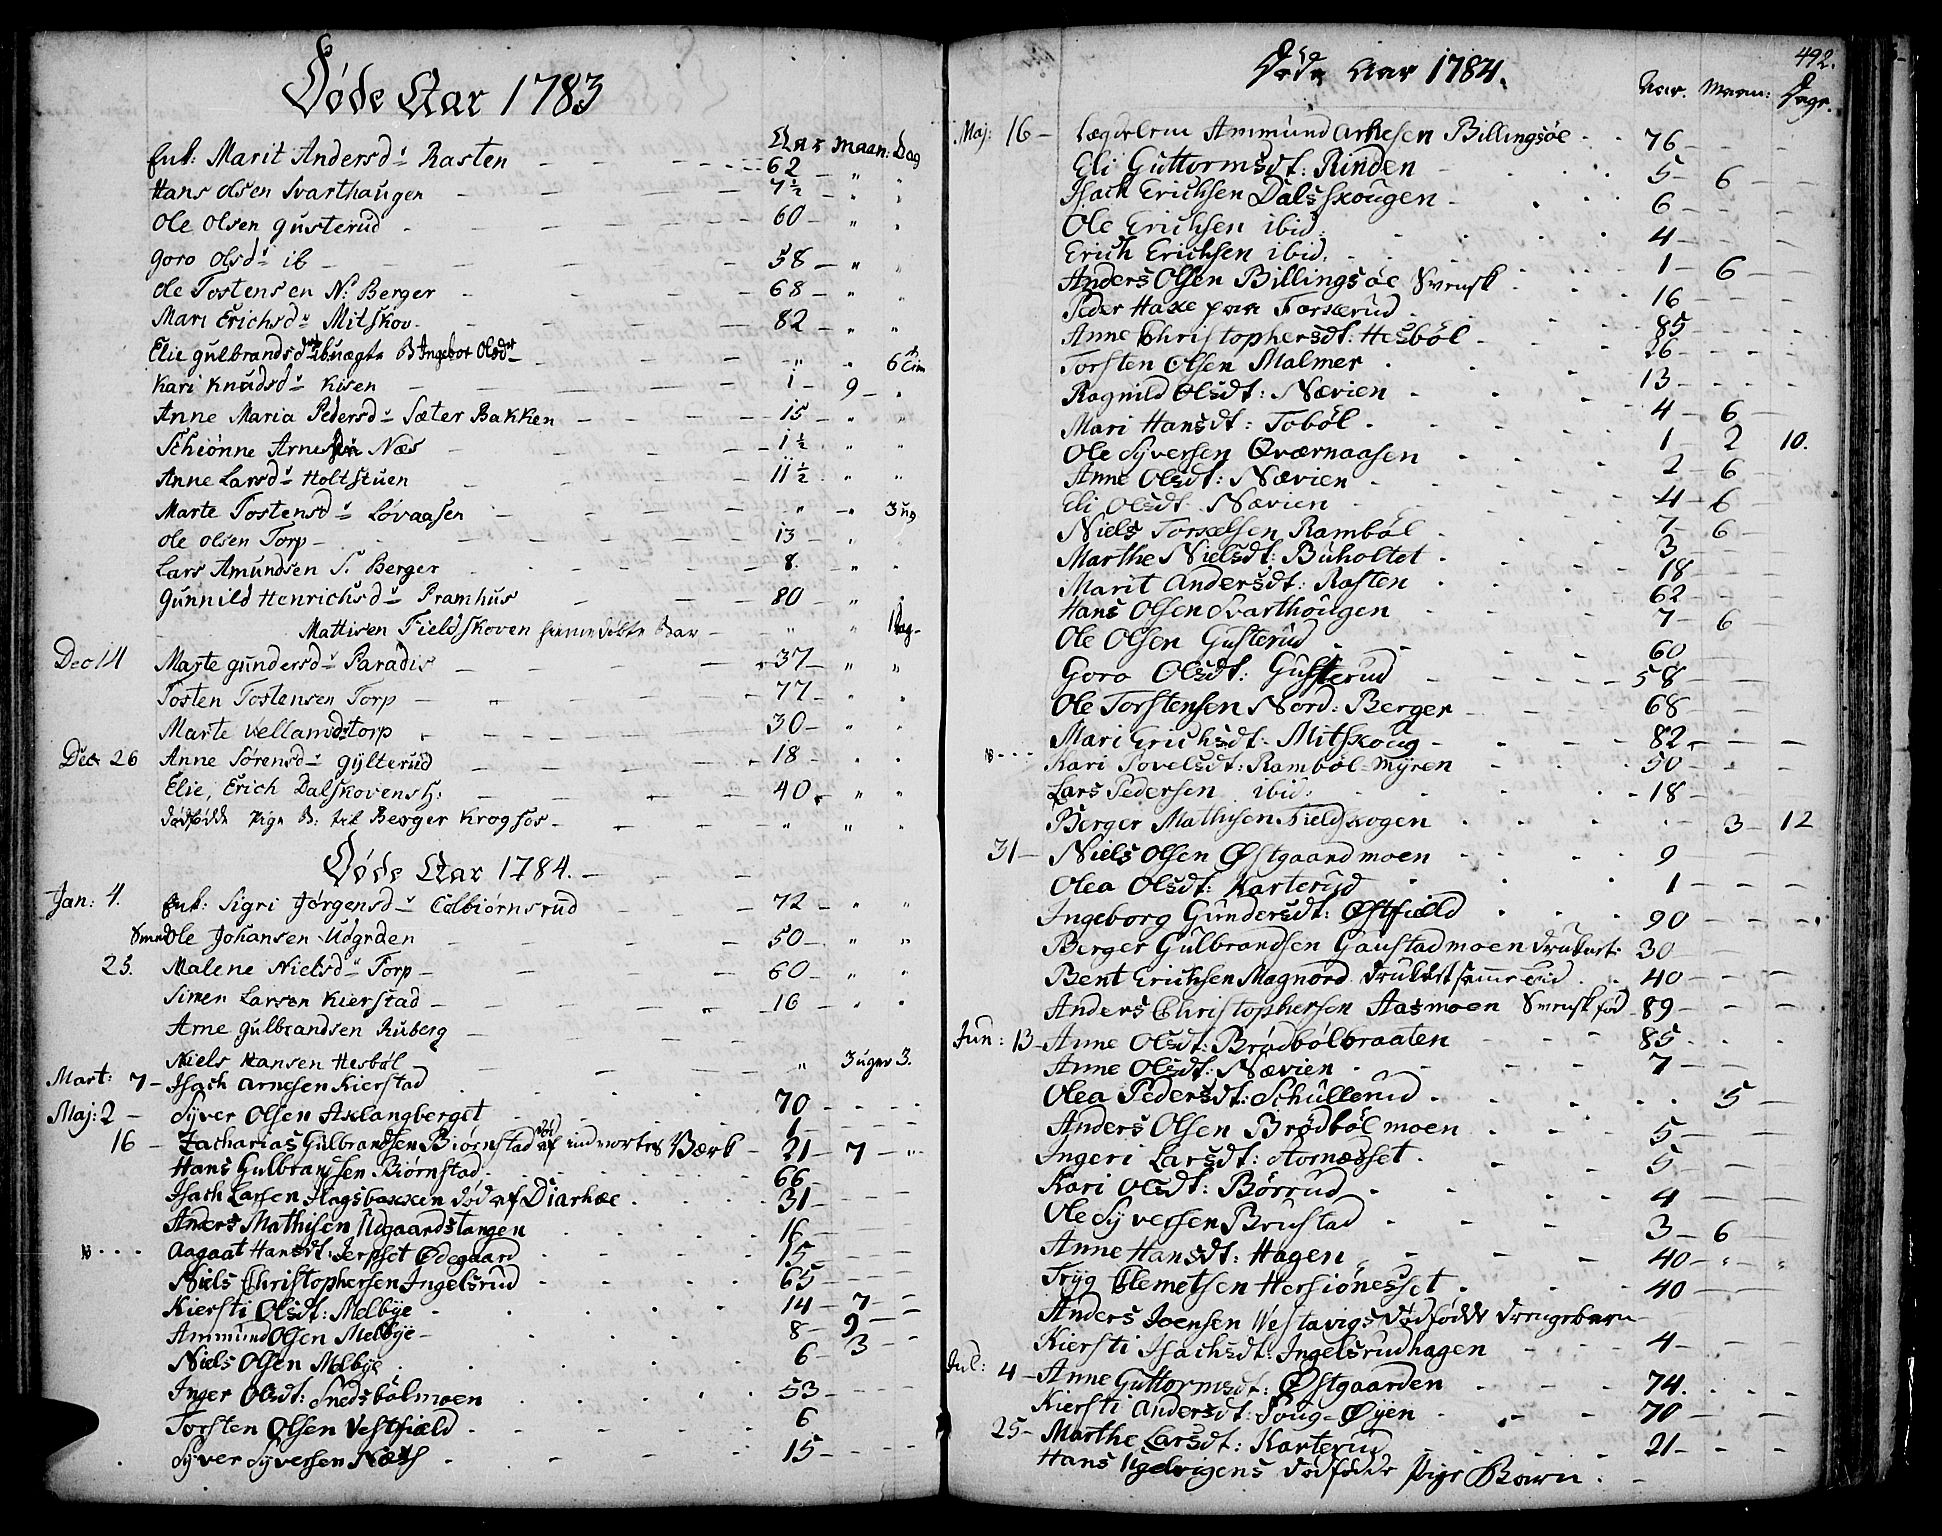 Døde Aar 1783
Aar maan: Dag
Enk: Marit Andersdr Rasten 62 " "
Hans Olsen Svarthaugen 7½ " "
Ole Olsen Gusterud 60 " "
Goro Olsdr ib 58 " "
Ole Tostensen N: Berger 68 " "
Mari Erichsdr Mitskov 82 " "
Elie Gulbrandsdr uægte B Ingebor Olsdr " " 6
Kari Knudsdr Kisen 1 9 "
Anne Maria Pedersdr Sæter Bakken 15 " "
Schiønne Arnesdr Næs 1½ " "
Anne Larsdr Holtstuen 11½ " "
Marte Tostensdr Løvaasen " " 3 ug
Ole Olsen Torp 13 " "
Lars Amundsen S. Berger 8 " "
Gunnild Henrichsdr Pramhus 80 " "
Mattisen Fieldskoven hiemedøbte Bar " " 1 Dag
Dec 14 Marte Gundersdr Paradis 37 " "
Tosten Tostensen Torp 77 " "
Marte Vellamdstorp 30 " "
Dec 26 Anne Sørensdr Gylterud 18 " "
Elie, Erich Dalskovens H: 40 " "
dødfødde Pige B: til Berger Krogfos " " "
Døde Aar 1784.
Jan: 4. Enk: Sigri Jørgensdr Colbiørnsrud 72 " "
Ole Johansen Udgrden 50 " "
25. Malene Nielsdr Torp 60 " "
Simen Larsen Kierstad 16 " "
Arne Gulbrandsen Ruberg
Niels Hansen Hesbøl " 3 uger 3.
Mart: 7 Isach Arnesen Kierstad
Maj: 2 Syver Olsen Axlangberget 70
16 Zacharias Gulbrandsen Biørnstad død af indvortes Værk 21 7 "
Hans Gulbrandsen Biørnstad 66
Isach Larsen Hagsbakken død af Diarhæe 31
Anders Mathisen Udgaardstangen 16
Aagaat Hansdt: Jerpset Ødegaard 15
Niels Christophersen Ingelsrud 65
Kiersti Olsdt: Melbye 14 7
Ammund Olsen Melbye 8 9
Niels Olsen Melbye 6 3
Inger Olsdt: Snedsbølmoen 53
Torsten Olsen Vestfiæld 6
Syver Syversen Næss 15
492.
Døde Aar 1784.
Aar. Maan: Dage.
Maj: 16 Lægdelem Ammund Arnesen Billingsøe 76
Eli Guttormsdt: Rinden 5 6
Isach Erichsen Dalsskougen 6
Ole Erichsen ibid: 4
Erich Erichsen ibid. 1 6
Anders Olsen Billingsøe Svensk 16
Peder Haxe paa Torkerud 85
Anne Christophersdt: Hesbøl 26
Torsten Olsen Malmer 13
Ragnild Olsdt: Nævien 4 6
Mari Hansdt: Tobøl 1 2 10.
Ole Syversen Qværnaasen 2 6
Anne Olsdt: Nævien 4 6
Eli Olsdt Nævien 7 6
Niels Torkelsen Rambøl 3
Marthe Nielsdt: Buholtet 18
Marit Andersdt: Rasten 62
Hans Olsen Svarthougen 7 6
Ole Olsen Gusterud 60
Goro Olsdt: Gusterud 58
Ole Torstensen Nord: Berger 68
Mari Erichsdt: Mitskoug 82
Kari Povelsdt: Rambøl-Myren 50
Lars Pedersen ibid: 18
Berger Mathisen Fieldskogen 3 12
31 Niels Olsen Østgaardmoen 9
Olea Olsdt: Karterud 1
Ingeborg Gundersdt: Østfiæld 90
Berger Gulbrandsen Gaustadmoen druknet 30
Bent Erichsen Magnord druknet samme tid 40
Anders Christophersen Aasmoen Svensk fød 89
Jun: 13 Anne Olsdt: Brødbølbraaten 85
Anne Olsdt: Nævien 7
Olea Pedersdt: Schullerud 5
Anders Olsen Brødbølmoen 5
Ingeri Larsdt: Aornæsset 5
Kari Olsdt: Børrud 4
Ole Syversen Brustad 3 6
Anne Hansdt: Hagen 40 " "
Tryg Clemetsen Hersiønesset 40
Anders Joensen Vestavigs dødfødde drengebarn
Kiersti Isachsdt: Ingelsrudhagen 4
Jul: 4 Anne Guttormsdt: Østgaarden 74.
Kiersti Andersdt: Soug-Øyen 70
25 Marthe Larsdt: Karterud 21
Hans dødfødde Pige Barn